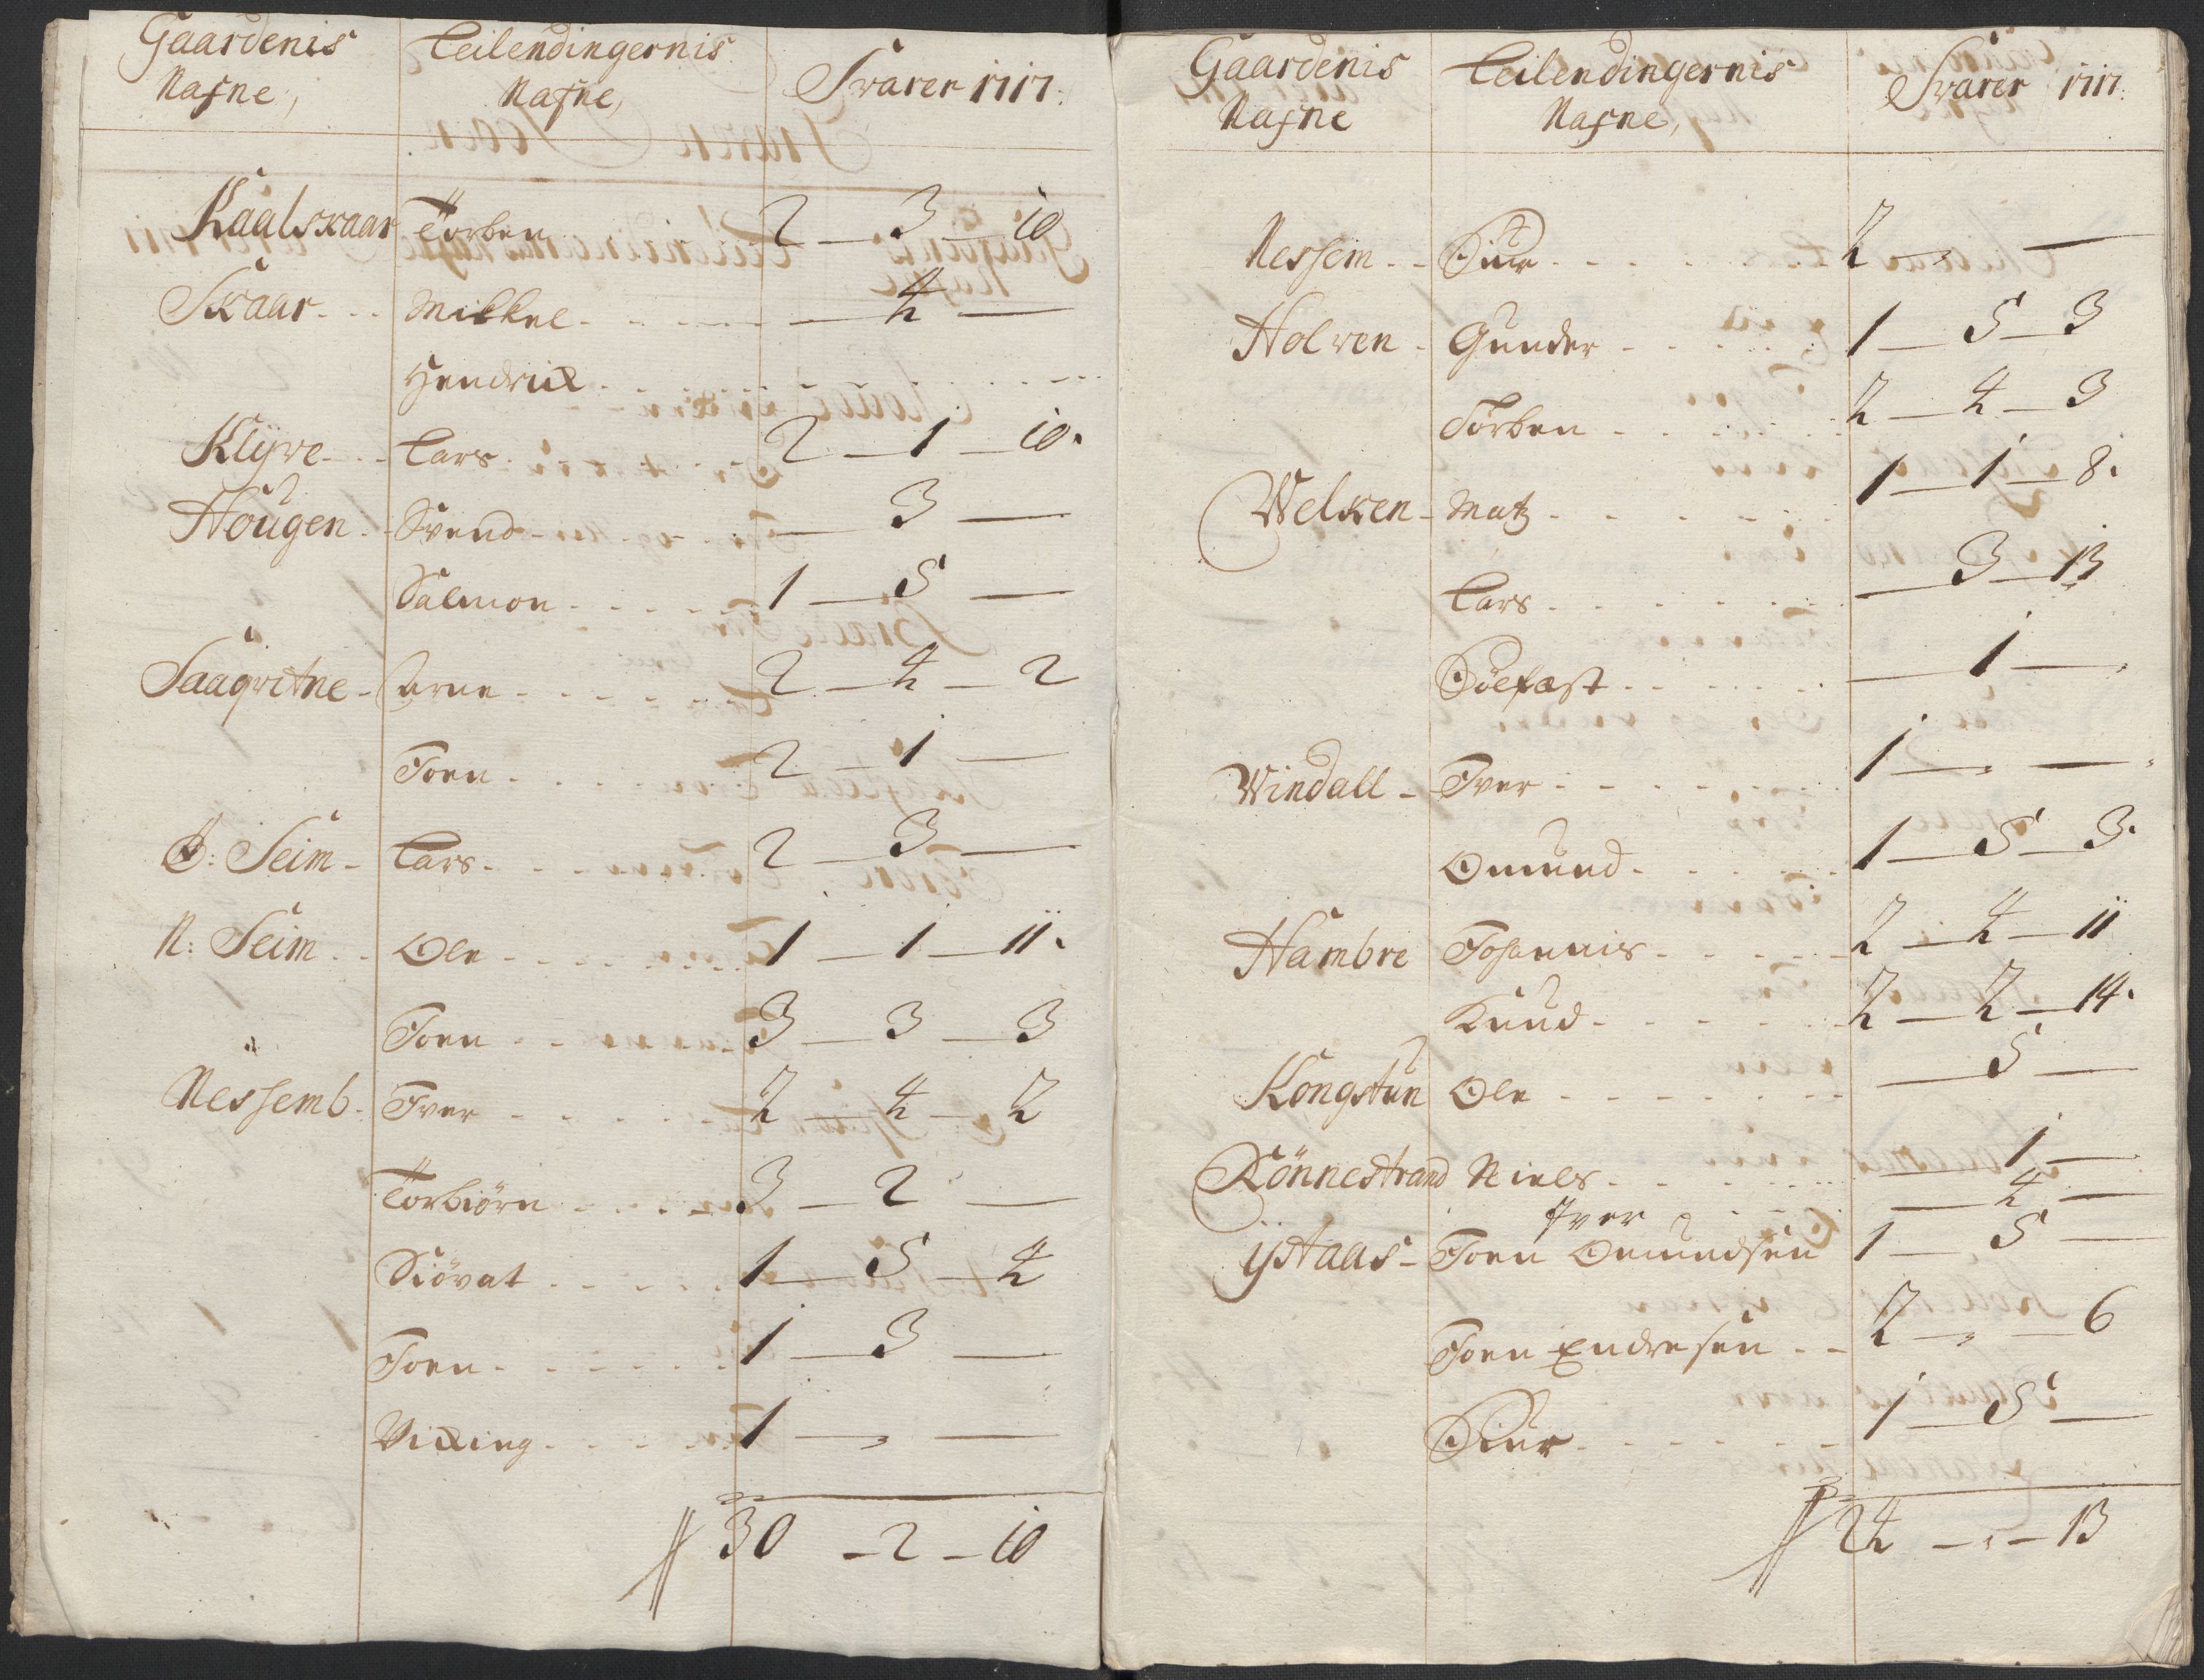 Gaardenis Nafne, Leilendingernis Nafne, Svarer 1717:
Kaalskaar Torben 2 — 3 — 10
Skaar Mikkel — 4 —
Hendrick
Klyve Lars 2 — 1 — 10.
Hougen Svend — 3 —
Salmon 1 — 5 —
Saaqvitne Arne 2 — 4 — 2
Joen 2 — 1 —
Ø: Seim Lars 2 — 3 —
N: Seim Ole 1 — 1 — 11.
Joen 3 — 3 — 3
Nessemb Iver 2 — 4 — 2
Torbiörn 3 — 2 —
Siövat 1 — 5 — 4
Joen 1 — 3 —
Viking 1 — „ —
30 — 2 — 10
Gaardenis Nafne Leilendingernis Nafne, Svarer 1717:
Nessem Siur 2 — „ —
Holven Gunder 1 — 5 — 3
Torben 2 — 4 — 3
Welken Matz 1 — 1 — 8.
Lars — 3 — 13
Söefast — 1 —
Windall Iver 1 — „ —
Omund 1 — 5 — 3.
Hambre Johannis 2 — 4 — 11
Knud 2 — 2 — 14.
Kongstun Ole — 5 —
Rönnestrand Niels — 1 —
Iver — 4 —
ÿstaas Joen Omundsen 1 — 5 —
Joen Endresen 2 — „ — 6
Siur 1 — 5 —
24 — „ — 13